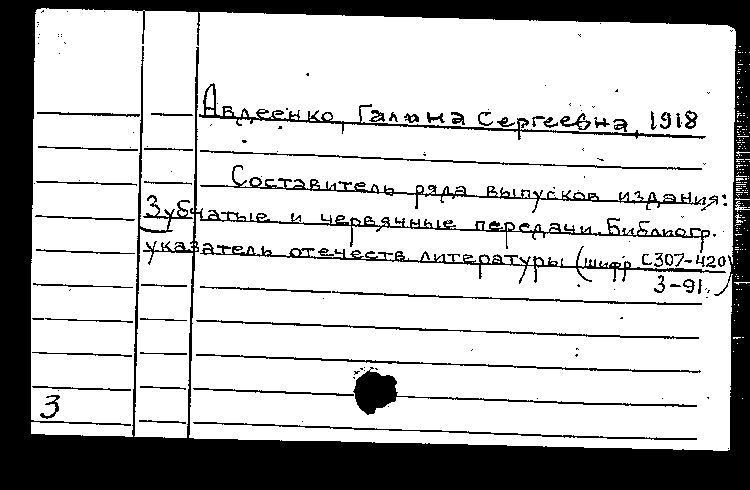 Авдеенко, Галина Сергеевна, 1918
Составитель ряда выпусков издания:
Зубчатые и червячные передачи. Библиогр.
указатель отечеств литературы (шифр С307-420)
3-91.
3